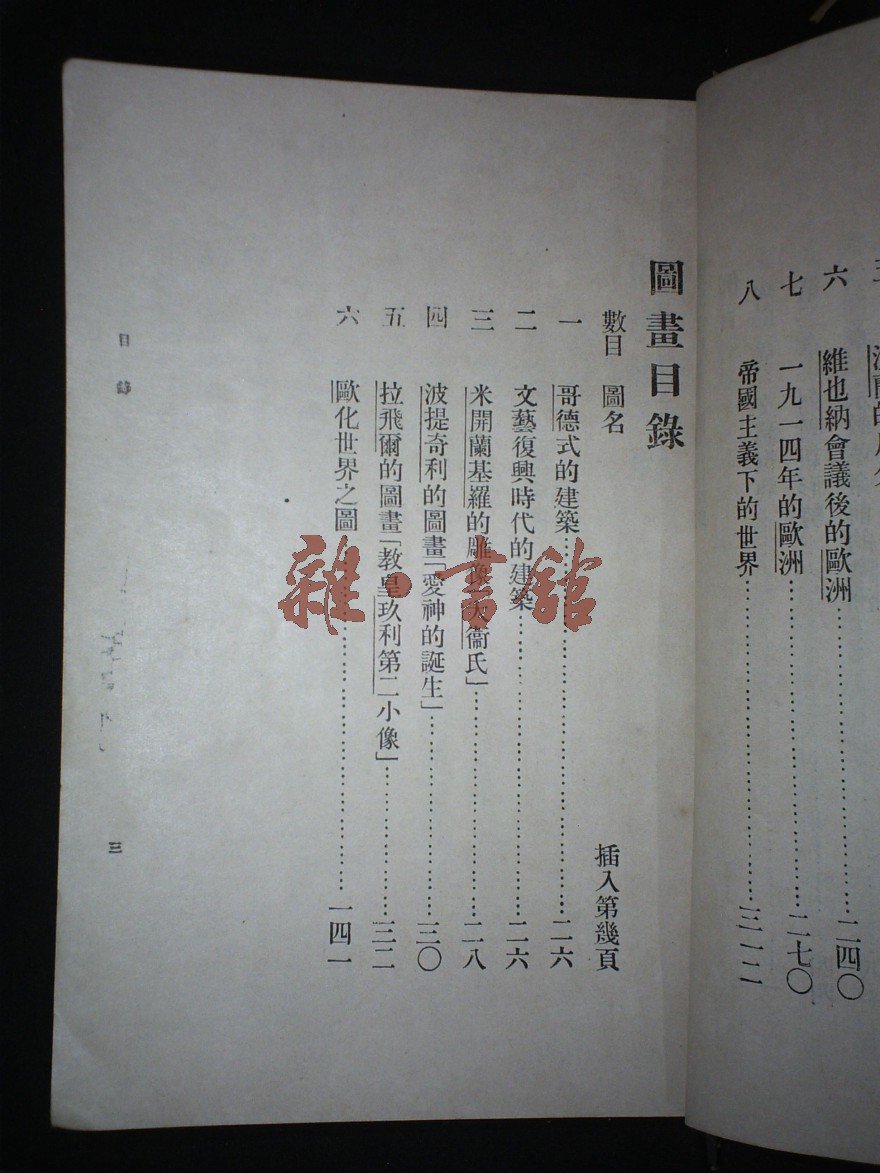 六 維也納會議後的歐洲……二四〇
七 一九一四年的歐洲……二七〇
八 帝國主義下的世界……三一二
圖畫目錄
數目 圖名 插入第幾頁
一 哥德式的建築……二六
二 文藝復興時代的建築……二六
三 米開蘭基羅的雕像「大衞氏」……二八
四 波提奇利的圖畫「愛神的誕生」……三〇
五 拉飛爾的圖畫「教皇玖利第二小像」……三二
六 歐化世界之圖……一四一
目錄 三
雜·書館